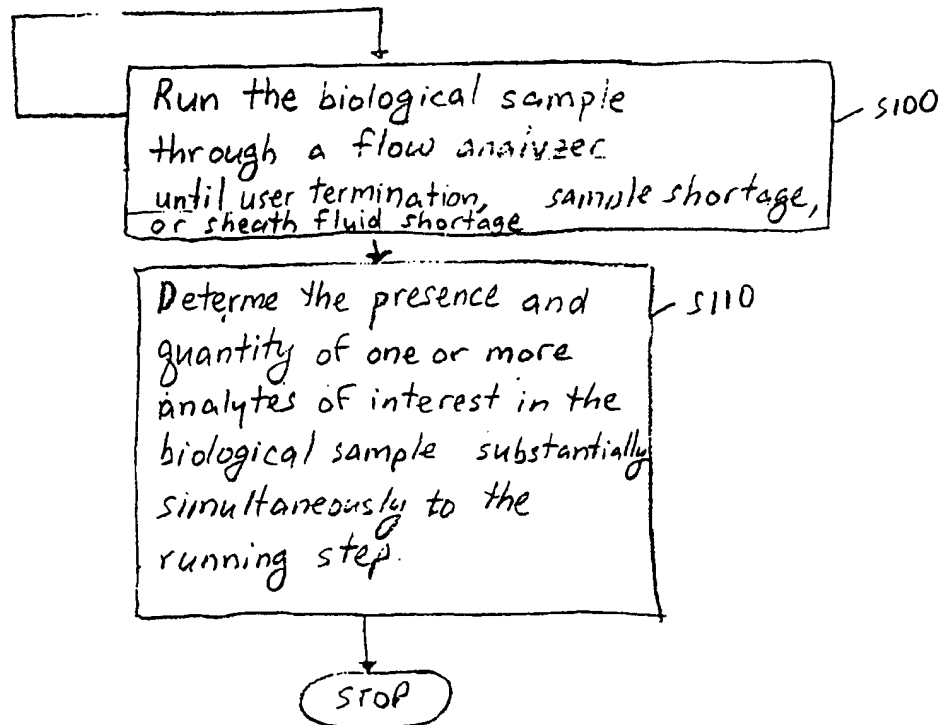 Run the biological sample
S100
through a flow analyzer
until user termination, sample shortage,
or sheath fluid shortage
Determe the presence and
S110
quantity of one or more
analytes of interest in the
biological sample substantially
simultaneously to the
running step.
STOP